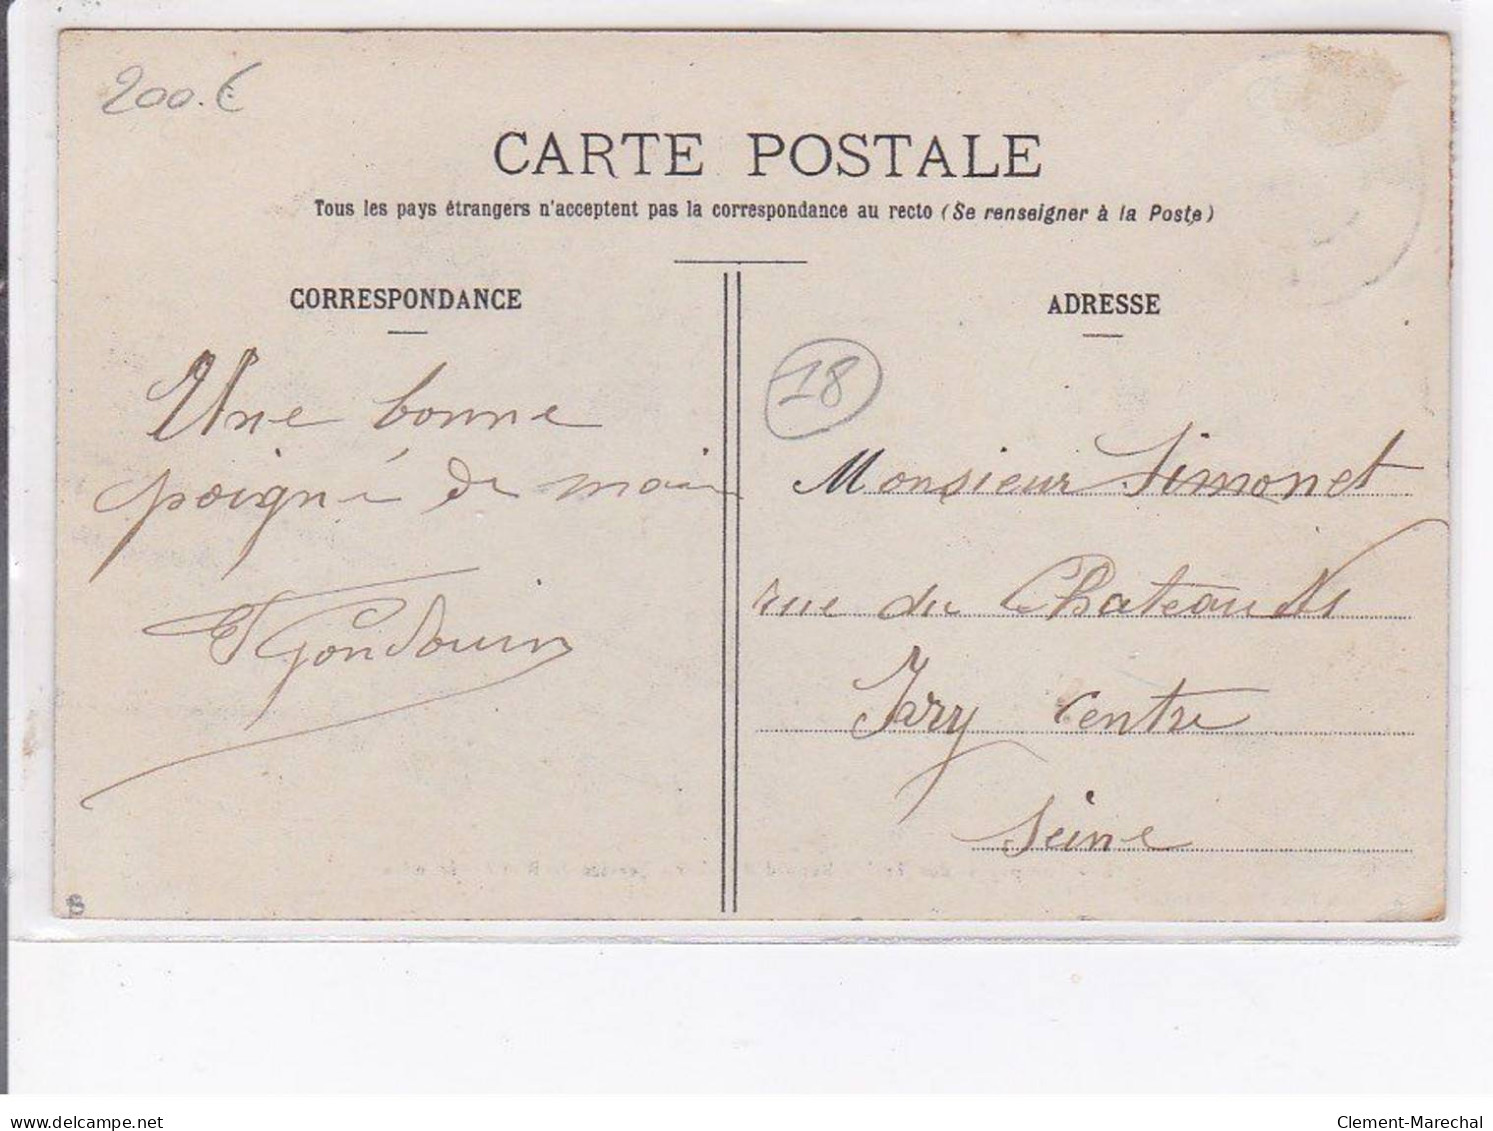 200.€
CARTE POSTALE
Tous les pays étrangers n'acceptent pas la correspondance au recto (Se renseigner à la Poste)
CORRESPONDANCE
Une bonne
poigné de main
Gondouin
ADRESSE
18
Monsieur Simonet
rue du Chateau
Ivry Centre
Seine
B
delcampe.net
Clement-Marechal